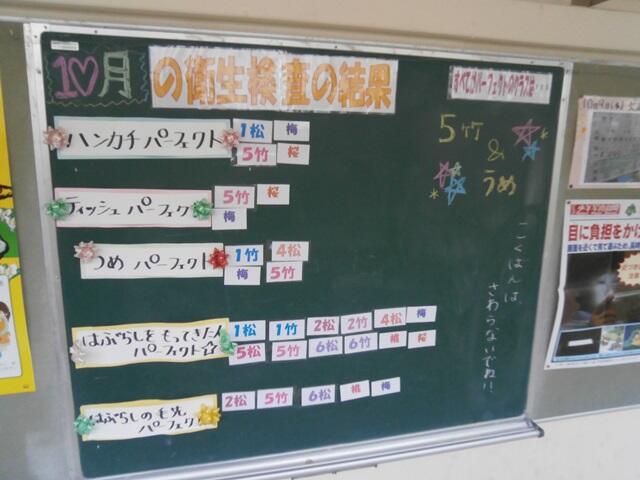 10月の衛生検査の結果
すべてがパーフェクトのクラスは・・・
5竹
&
うめ
こくばんは、
さわらないでね!!
ハンカチ パーフェクト
1松 梅
5竹 桜
ティッシュ パーフェクト
5竹 桜
梅
つめ パーフェクト
1竹 4松
梅 5竹
はぶらしをもってきた人
パーフェクト☆
1松 1竹 2松 2竹 4松 梅
5松 5竹 6松 6竹 桃 桜
はぶらしの毛先
パーフェクト
2松 5竹 6松 桃 梅
目に負担をかけ